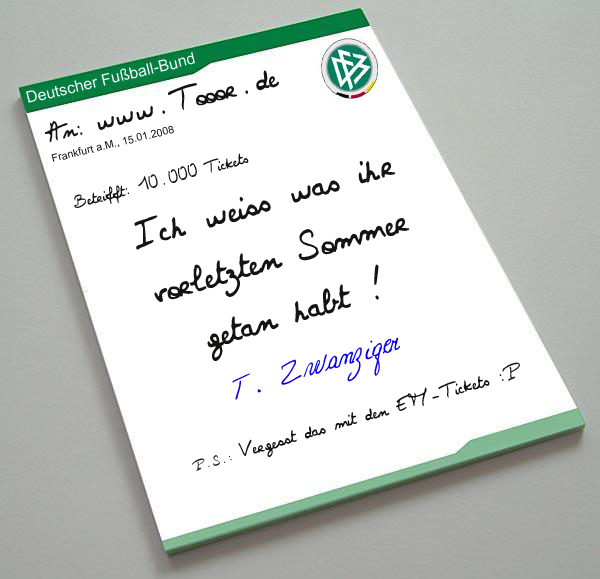 Deutscher Fußball-Bund
DFB
An: www.Tooor.de
Frankfurt a.M., 15.01.2008
Betrifft: 10.000 Tickets
Ich weiss was ihr
vorletzten Sommer
getan habt !
T. Zwanziger
P.S.: Vergesst das mit den EM-Tickets :P